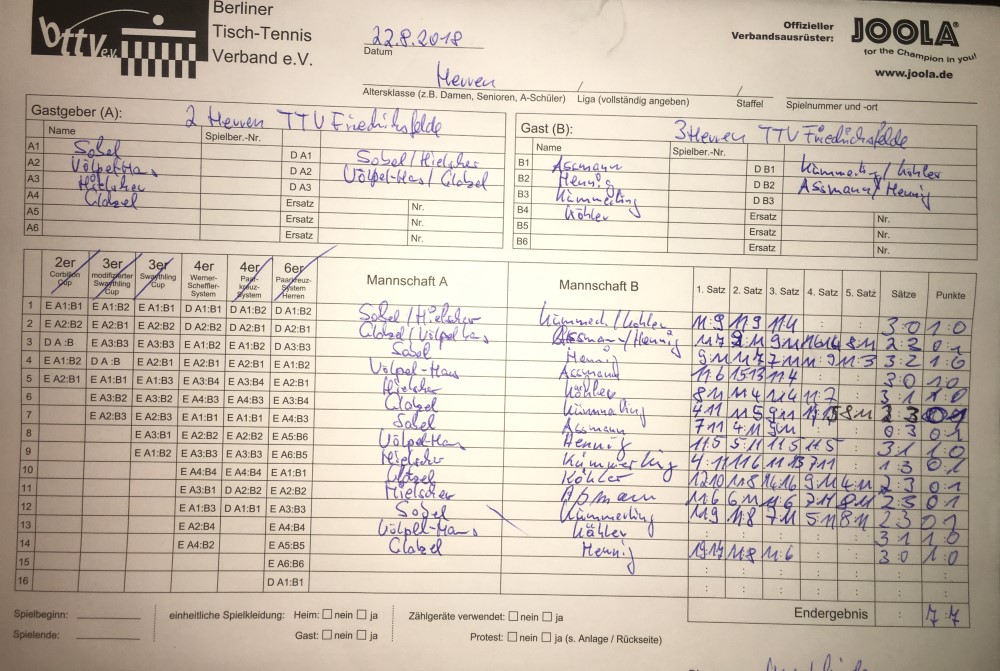 bttv e.V.
Berliner
Tisch-Tennis
Verband e.V.
22.8.2018
Datum
Herren
Altersklasse (z.B. Damen, Senioren, A-Schüler)
Liga (vollständig angeben)
Staffel
Spielnummer und -ort
Offizieller
Verbandsausrüster:
JOOLA®
for the Champion in you!
www.joola.de
Gastgeber (A): 2 Herren TTV Friedrichsfelde
Name Spielber.-Nr.
A1 Sobel D A1 Sobel/Hielscher
A2 Völpel-Has D A2 Völpel-Has/Glatzel
A3 Hielscher D A3
A4 Glatzel Ersatz Nr.
A5 Ersatz Nr.
A6 Ersatz Nr.
Gast (B): 3 Herren TTV Friedrichsfelde
Name Spielber.-Nr.
B1 Assmann D B1 Kümmerling/Köhler
B2 Hennig D B2 Assmann/Hennig
B3 Kümmerling D B3
B4 Köhler Ersatz Nr.
B5 Ersatz Nr.
B6 Ersatz Nr.
2er Corbillon Cup 3er modifizierter Swaythling Cup 3er Swaythling Cup 4er Werner-Scheffler-System 4er Paarkreuz-System 6er Paarkreuz-System Herren Mannschaft A Mannschaft B 1. Satz 2. Satz 3. Satz 4. Satz 5. Satz Sätze Punkte
1 E A1:B1 E A1:B2 E A1:B1 D A1:B1 D A1:B2 D A1:B2 Sobel/Hielscher Kümmerl/Köhler 11:9 11:9 11:4 : : 3:0 1:0
2 E A2:B2 E A2:B1 E A2:B2 D A2:B2 D A2:B1 D A2:B1 Glatzel/Völpel-Has Assmann/Hennig 0:1
3 D A :B E A3:B3 E A3:B3 E A1:B2 E A1:B2 D A3:B3 Sobel Hennig 3:2 1:0
4 E A1:B2 D A :B E A2:B1 E A2:B1 E A2:B1 E A1:B2 Völpel-Has Assmann 11:6 15:13 11:4 : : 3:0 1:0
5 E A2:B1 E A1:B1 E A1:B3 E A3:B4 E A3:B4 E A2:B1 Hielscher Köhler 8:11 11:4 11:4 11:7 : 3:1 1:0
6 E A3:B2 E A3:B2 E A4:B3 E A4:B3 E A3:B4 Glatzel Kümmerling 4:11 11:5 9:11 8:11 2:3 0:1
7 E A2:B3 E A2:B3 E A1:B1 E A1:B1 E A4:B3 Sobel Assmann 7:11 4:11 5:11 : : 0:3 0:1
8 E A3:B1 E A2:B2 E A2:B2 E A5:B6 Völpel-Has Hennig 11:5 5:11 11:5 11:5 : 3:1 1:0
9 E A1:B2 E A3:B3 E A3:B3 E A6:B5 Hielscher Kümmerling 4:11 11:6 11:13 7:11 : 1:3 0:1
10 E A4:B4 E A4:B4 E A1:B1 Glatzel Köhler 12:10 11:8 14:16 9:11 4:11 2:3 0:1
11 E A3:B1 D A2:B2 E A2:B2 Hielscher Aßmann 11:6 6:11 11:6 7:11 8:11 2:3 0:1
12 E A1:B3 D A1:B1 E A3:B3 Sobel Kümmerling 11:9 11:8 7:11 5:11 8:11 2:3 0:1
13 E A2:B4 E A4:B4 Völpel-Has Köhler : : : : : 3:1 1:0
14 E A4:B2 E A5:B5 Glatzel Hennig 19:17 11:8 11:6 : : 3:0 1:0
15 E A6:B6 : : : : : : :
16 D A1:B1 : : : : : : :
Endergebnis : 7:7
Spielbeginn: einheitliche Spielkleidung: Heim: ☐ nein ☐ ja Zählgeräte verwendet: ☐ nein ☐ ja
Spielende: Gast: ☐ nein ☐ ja Protest: ☐ nein ☐ ja (s. Anlage / Rückseite)